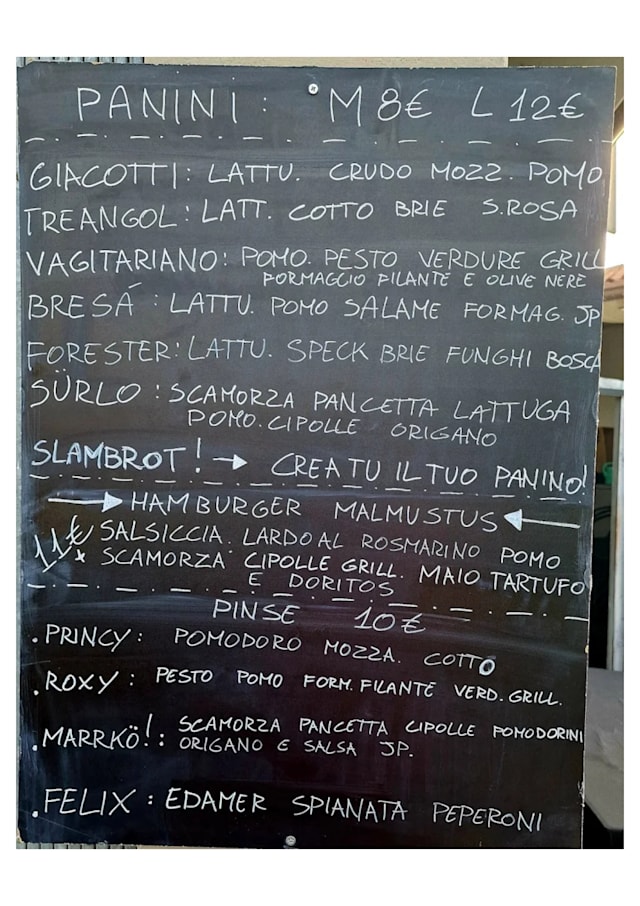 PANINI: M 8€ L 12€
GIACOTTI: LATTU. CRUDO MOZZ. POMO
TREANGOL: LATT. COTTO BRIE S.ROSA
VAGITARIANO: POMO. PESTO VERDURE GRILL
FORMAGGIO FILANTE E OLIVE NERE
BRESÁ: LATTU. POMO SALAME FORMAG. JP
FORESTER: LATTU. SPECK BRIE FUNGHI BOSCA
SÜRLO: SCAMORZA PANCETTA LATTUGA
POMO. CIPOLLE ORIGANO
SLAMBROT! → CREA TU IL TUO PANINO!
→ HAMBURGER MALMUSTUS ←
11€ SALSICCIA. LARDO AL ROSMARINO POMO
* SCAMORZA CIPOLLE GRILL. MAIO TARTUFO
E DORITOS
PINSE 10€
.PRINCY: POMODORO MOZZA. COTTO
.ROXY: PESTO POMO FORM. FILANTE VERD. GRILL.
.MARRKÖ!: SCAMORZA PANCETTA CIPOLLE POMODORINI
ORIGANO E SALSA JP.
.FELIX: EDAMER SPIANATA PEPERONI